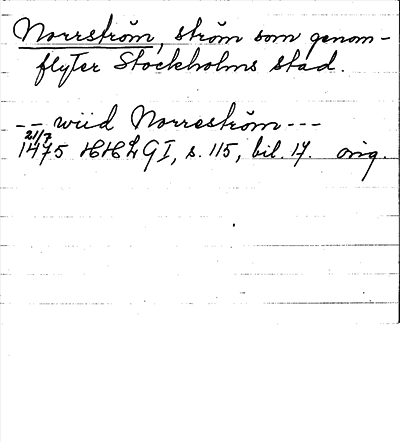 Norrström, ström som genom-
flyter Stockholms stad.
-- wiid Norreström ---
21/7
1475 HHL GI, s. 115, bil. 17. orig.